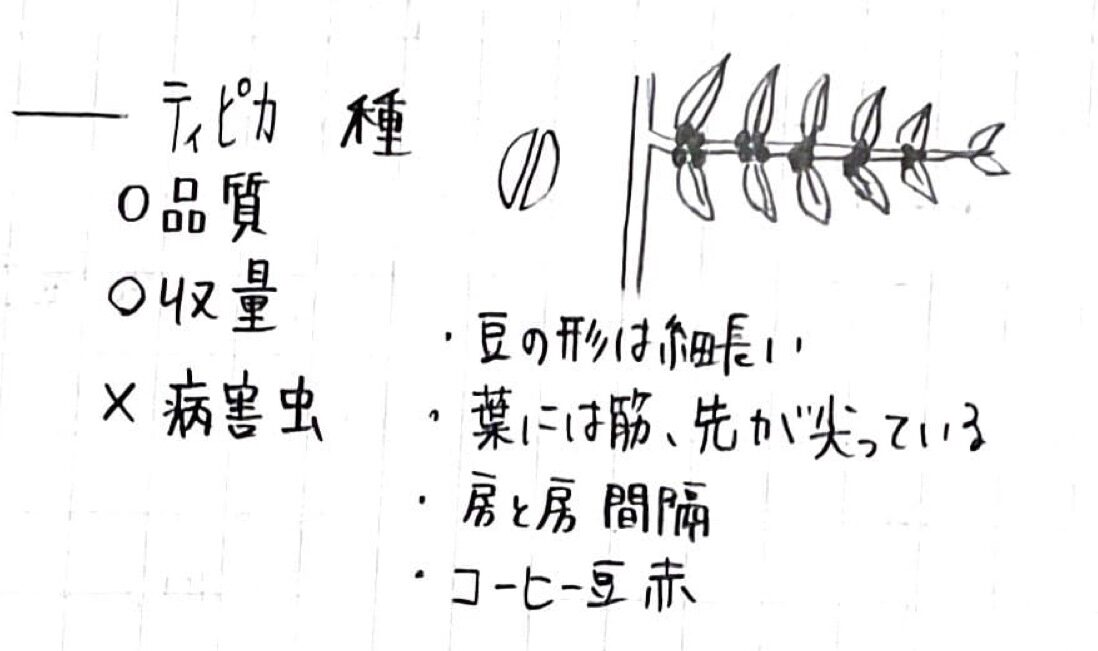 ティピカ 種
○品質
○収量
× 病害虫
・豆の形は細長い
・葉には筋、先が尖っている
・房と房 間隔
・コーヒー豆 赤